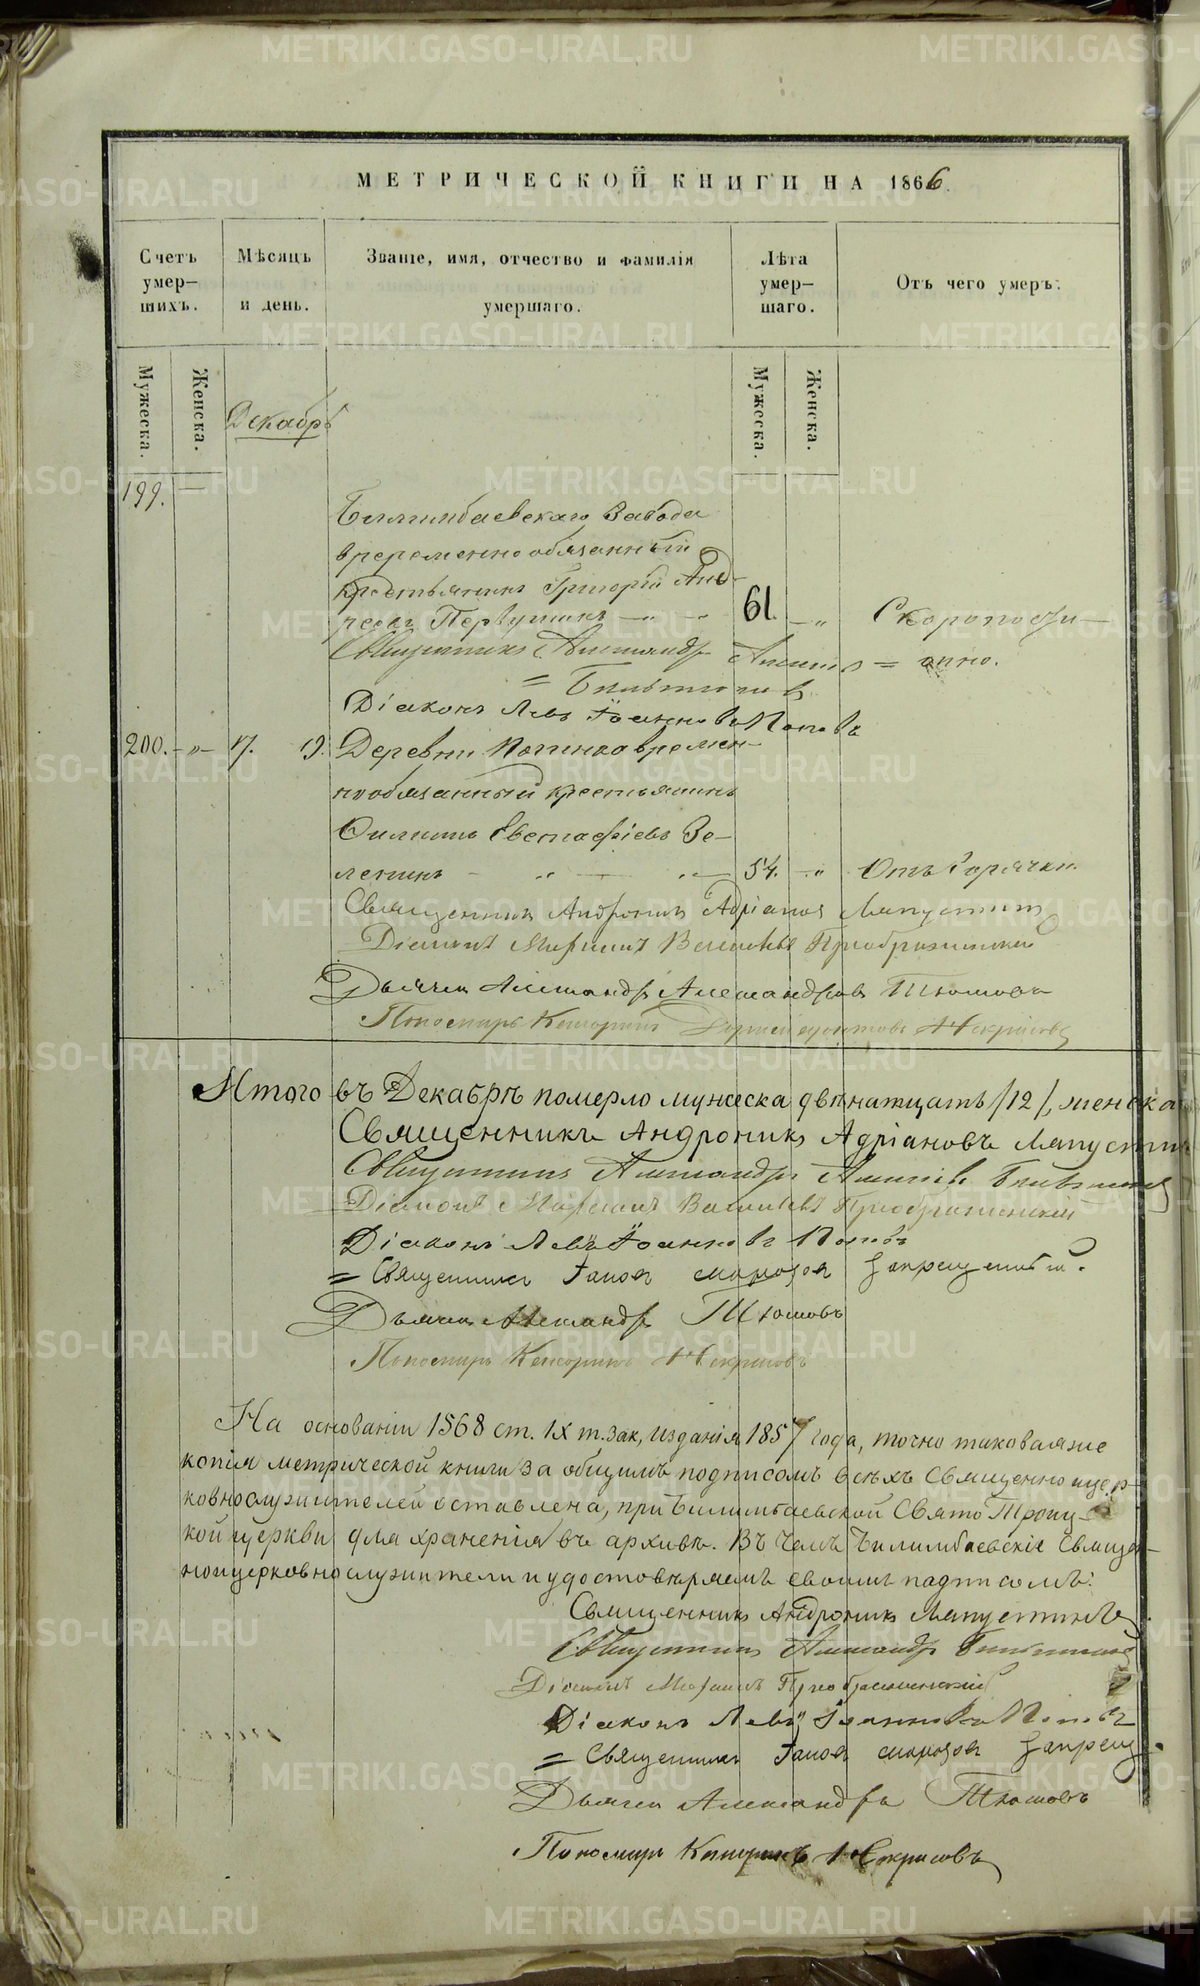 МЕТРИЧЕСКОЙ КНИГИ НА 1866.
Счетъ умер-
шихъ.
Мѣсяцъ
и день.
Званіе, имя, отчество и фамилія
умершаго.
Лѣта
умер-
шаго.
Отъ чего умеръ.
Мужеска.
Женска.
Декабрь
Мужеска.
Женска.
199. —
Билимбаевскаго Завода
временно обязанный
крестьянинъ Григорій Анд-
реевъ Первушинъ — 61. — Скоропости-
Священникъ Александръ = жно.
=
Діаконъ Левъ Іоанновъ Поповъ
200. — 17. 19. Деревни времен-
нообязанный крестьянинъ
Филиппъ Евстафіевъ Зе-
ленинъ — 54. — Отъ Горячки.
Священникъ Андроникъ Адріановъ Ляпустинъ
Діаконъ Василіевъ Преображенскій
Дьячекъ Александръ Александровъ Тюшовъ
Пономарь Некрасовъ
Итого въ Декабрѣ померло мужеска двѣнатцать /12/, женска
Священникъ Андроникъ Адріановъ Ляпустинъ
Священникъ Александръ
Діаконъ Василіевъ Преображенскій
Діаконъ Левъ Іоанновъ Поповъ
= Священникъ запрещенный.
Дьячекъ Александръ Тюшовъ
Пономарь Некрасовъ
На основаніи 1568 ст. IX т. зак, изданія 1857 года, точно таковаяже
копія метрической книги за общимъ подписомъ всѣхъ Священноцер-
ковнослужителей оставлена, при Билимбаевской Свято Троиц-
кой церкви для храненія въ архивѣ. Въ чемъ Билимбаевскіе Священ-
ноицерковнослужители и удостовѣряемъ своимъ подписомъ:
Священникъ Андроникъ Ляпустинъ
Священникъ Александръ
Діаконъ Преображенскій
Діаконъ Левъ Іоанновъ Поповъ
= Священникъ запрещ.
Дьячекъ Александръ Тюшовъ
Пономарь Некрасовъ
METRIKI.GASO-URAL.RU